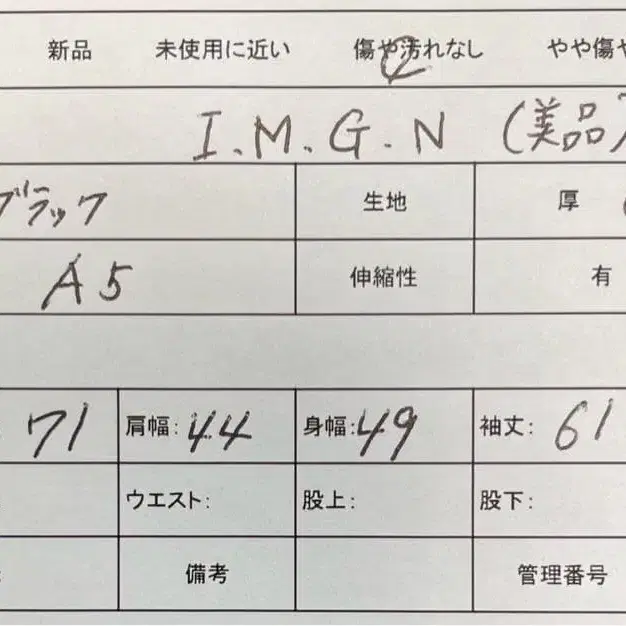 新品 未使用に近い 傷や汚れなし やや傷や
I.M.G.N (美品)
ブラック 生地 厚
A5 伸縮性 有
71 肩幅: 44 身幅: 49 袖丈: 61
ウエスト: 股上: 股下:
備考 管理番号